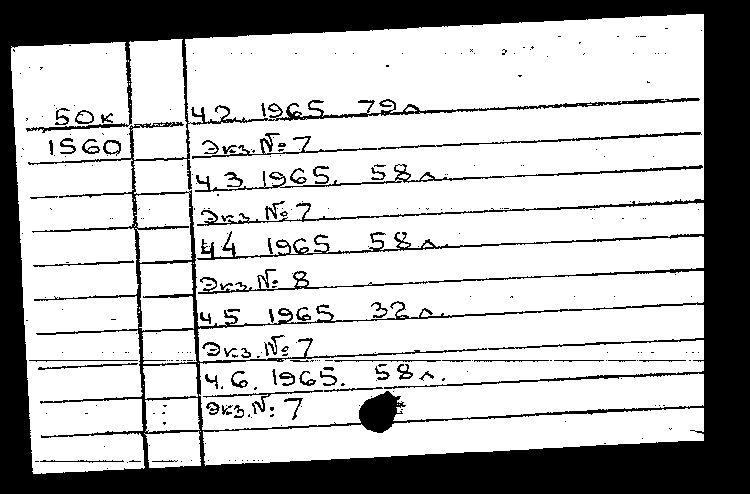 50к Ч.2. 1965 79л.
1560 Экз.№ 7
Ч.3 1965. 58л.
Экз.№ 7.
Ч4 1965. 58л.
Экз.№ 8
Ч.5 1965 32л.
Экз.№ 7
Ч.6. 1965. 58л.
Экз.№ 7